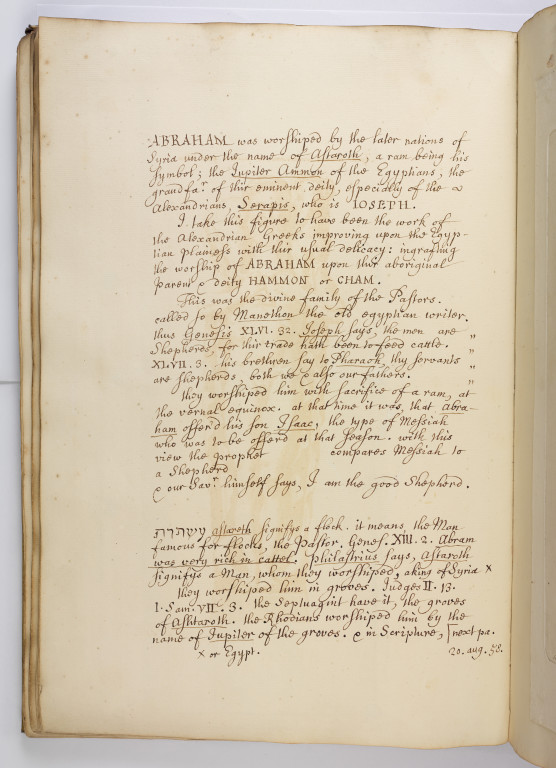 ABRAHAM was worshiped by the later nations of
Syria under the name of Astaroth, a ram being his
symbol; the Jupiter Ammon of the Egyptians, the
grandfar. of thir eminent deity, especially of the
Alexandrians, Serapis, who is IOSEPH.
I take this figure to have been the work of
the Alexandrian Greeks improving upon the Egyp-
tian plainess with thir usual delicacy: ingrafting
the worship of ABRAHAM upon thir aboriginal
parent & deity HAMMON or CHAM.
This was the divine family of the Pastors.
called so by Manethon the old egyptian writer.
thus Genesis XLVI. 32. Joseph says, the men are
Shepherds, for thir trade hath been to feed cattle. "
XLVII. 3. his brethren say to Pharaoh, thy servants "
are shepherds, both we & also our fathers. "
they worshiped him with sacrifice of a ram, at
the vernal equinox. at that time it was, that Abra-
ham offerd his son Isaac, the type of Messiah
who was to be offerd at that season. with this
view the prophet compares Messiah to
a Shepherd
& our Savr. himself says, I am the good Shepherd.
עשתרת astareth signifys a flock. it means, the Man
famous for flocks, the Pastor. Genes. XIII. 2. Abram
was very rich in cattel. Philastrius says, Astaroth
signifys a Man, whom they worshiped, a king of Syria x
they worshiped him in groves. Judges II. 13.
I. Sam. VII. 3. the Septuagint have it, the groves
of Ashtaroth. the Rhodians worshiped him by the
name of Jupiter of the groves. & in Scripture, [next pa.
x or Egypt. 20. aug. 58.